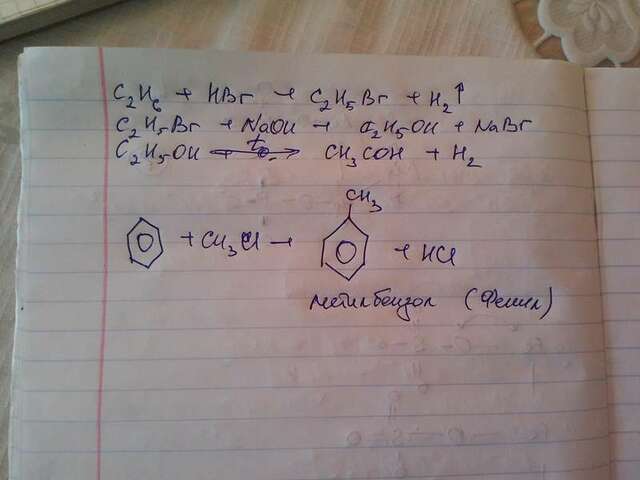 C₂H₆ + HBr → C₂H₅Br + H₂↑
C₂H₅Br + NaOH → C₂H₅OH + NaBr
C₂H₅OH ⟶ t° CH₃COH + H₂
CH₃
+ CH₃Cl → + HCl
метилбензол (Фенил)